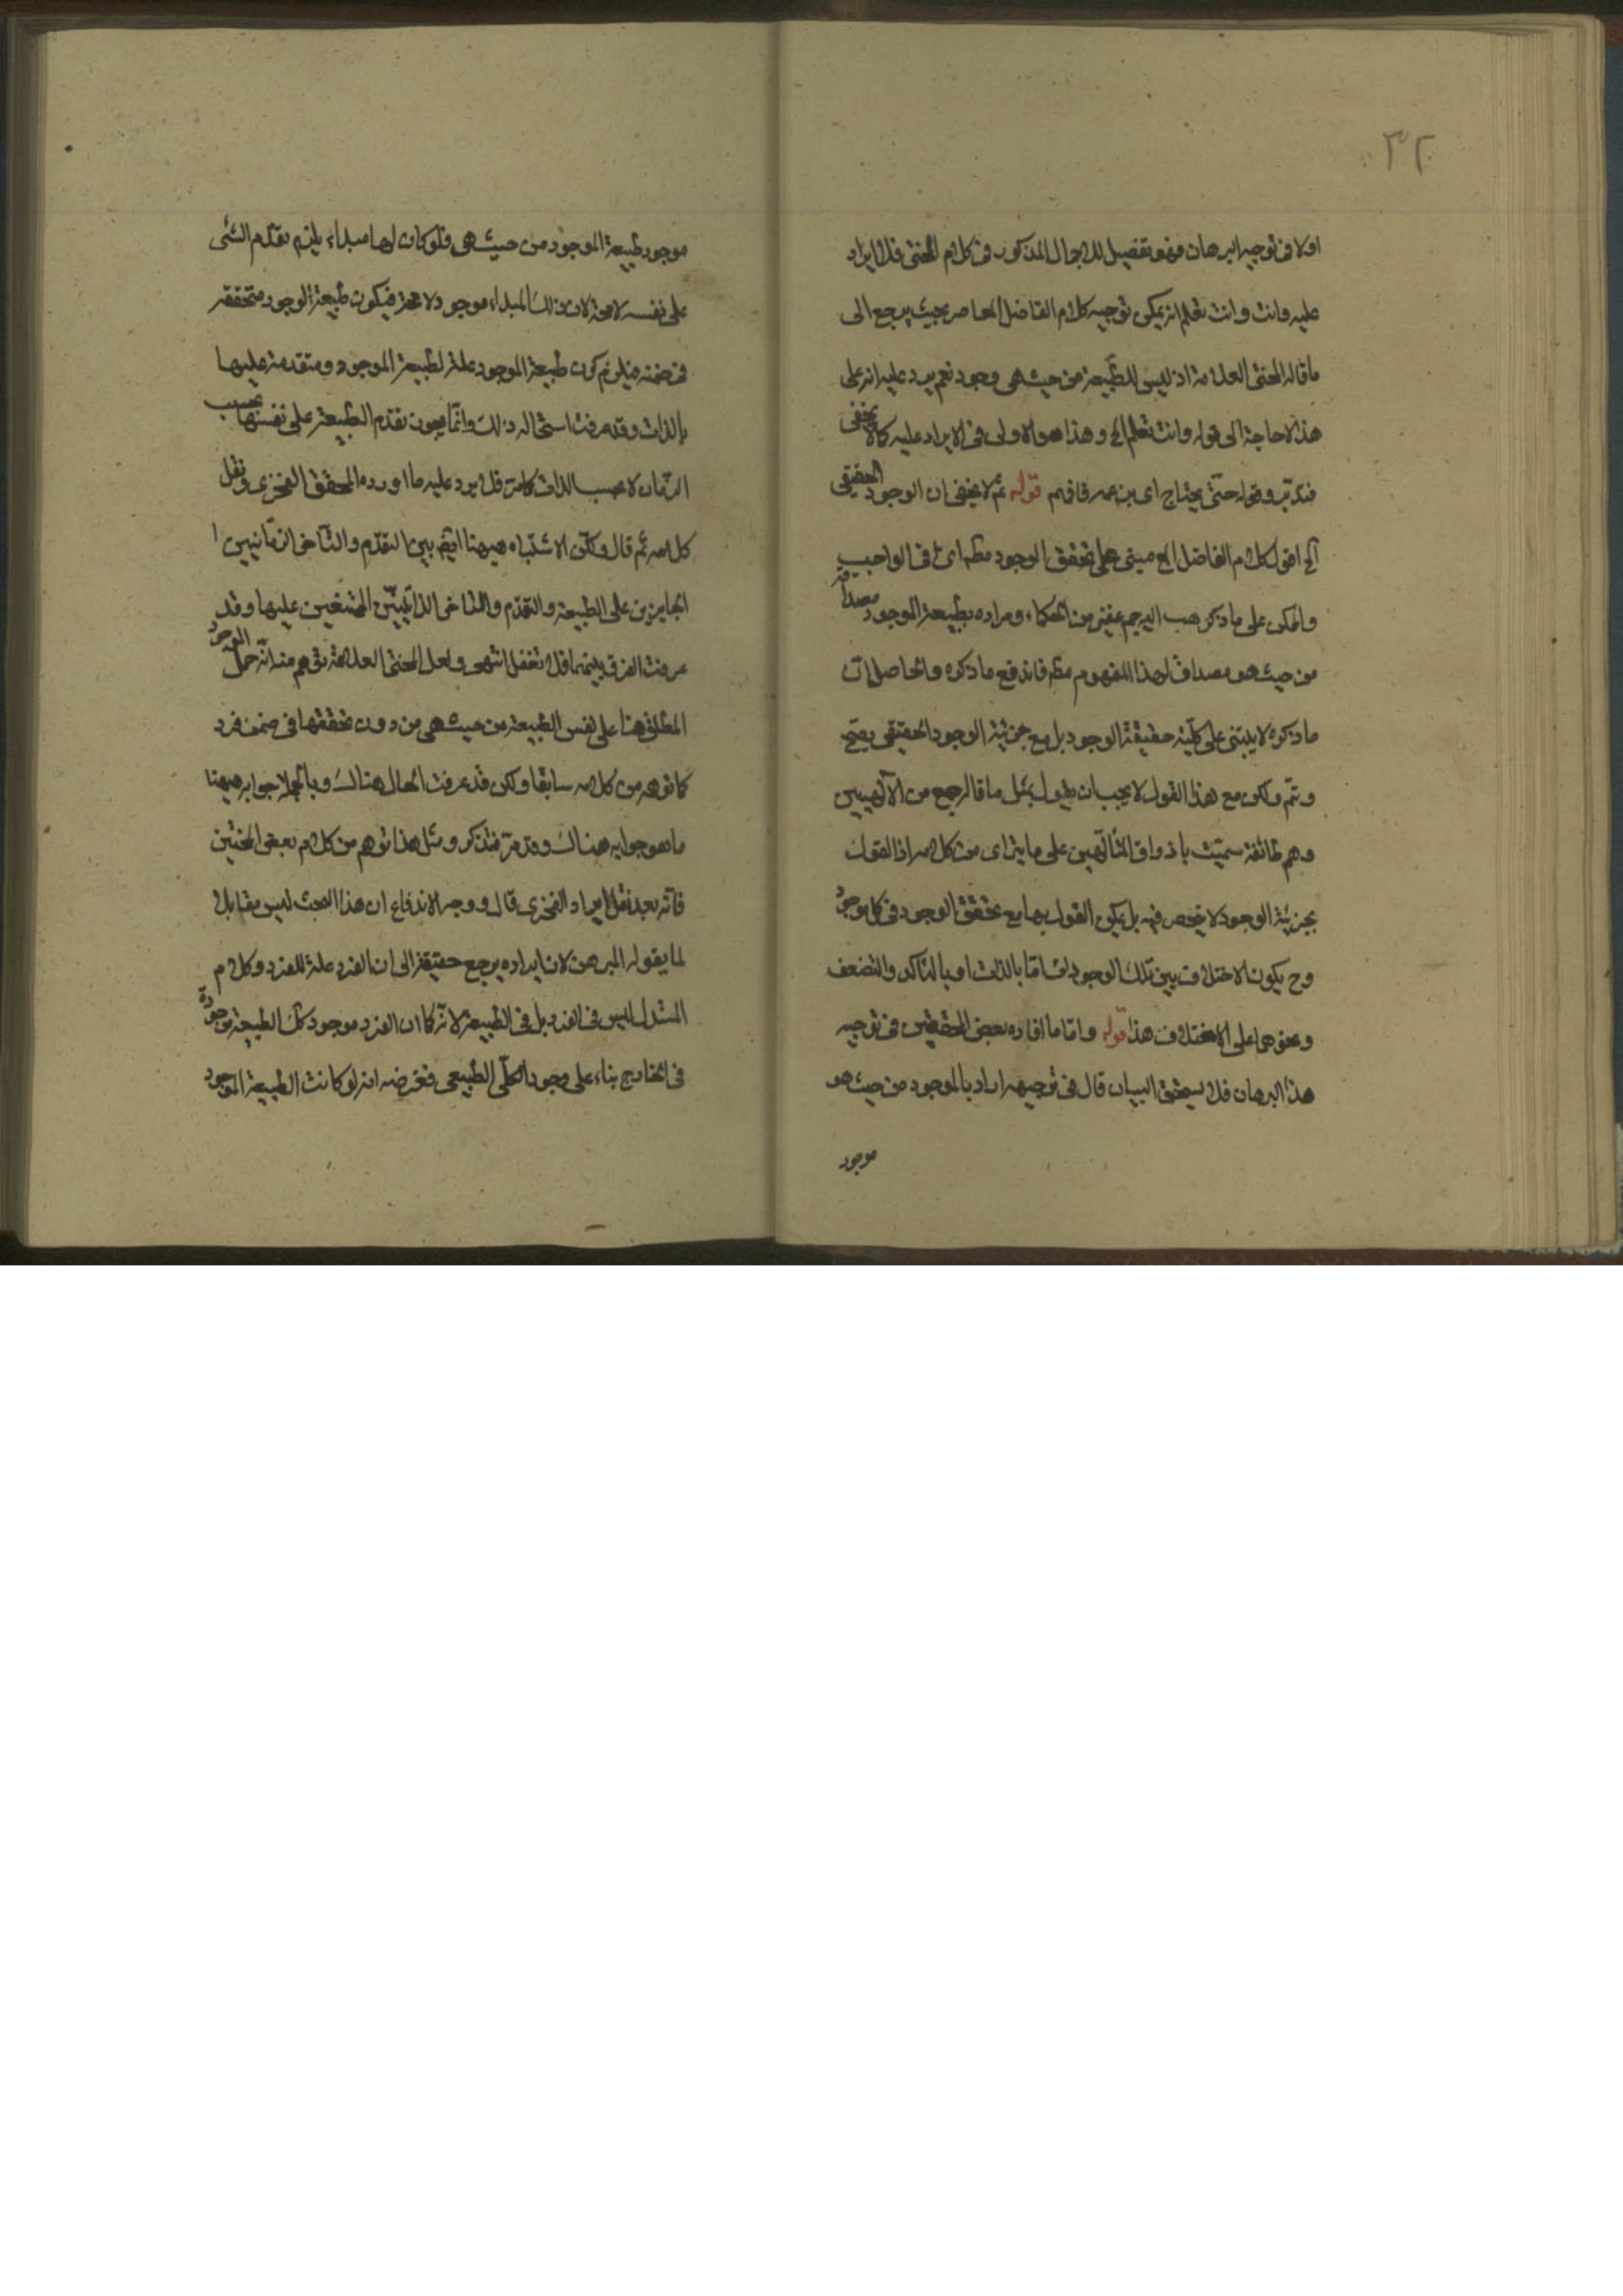 ٣٢
اولا فى توجيه البرهان فهو تفصيل للاجمال المذكور فى كلام المحشى فلا ايراد
عليه وانت وانت تعلم انه يمكن توجيه كلام الفاضل المعاصر بحيث يرجع الى
ما قاله المحشى العلامة اذ ليس للطبيعة من حيث هى وجود نعم يرد عليه انه على
هذا لا حاجة الى قوله وانت تعلم الخ وهذا هو الاولى فى الايراد عليه كما لا يخفى
فتدبر وقوله حتى يحتاج اى بن عمه فافهم قوله ثم لا يخفى ان الوجود الحقيقى
الخ اقول كلام الفاضل مبنى على تحقق الوجود مطه اى فى الواجب
والممكن على ما ذكر هب اليه جم غفير من الحكماء ومراده بطبيعة الموجود مصداقه
من حيث هو مصداق لهذا المفهوم مطه فاندفع ما ذكره والحاصل ان
ما ذكره لا يبتنى على كلية حقيقة الوجود بل مع جزئية الوجود الحقيقى يصح
ويتم ولكن مع هذا القول لا يجب ان يقول بمثل ما قاله جمع من الآلهيين
وهم طائفة سميت باذواق المتألهين على ما يترائى من كلامه اذ القول
بجزئية الوجود لا ينحصر فيه بل يمكن القول بها مع تحقق الوجود فى كل موجود
وح يكون الاختلاف بين تلك الوجودات اما بالذات او بالتأكد والتضعف
ونحوهما على الاختلاف هذا قوله واما ما افاده بعض المحققين فى توجيه
هذا البرهان فلا يستحق البيان قال فى توجيهه اراد بالموجود من حيث هو
موجود
موجود طبيعة الموجود من حيث هى فلو كان لها مبداء يلزم تقدم الشئ
على نفسه لا محة لان ذلك المبداء موجود لا محة فيكون طبيعة الوجود متحققه
فى ضمنه فيلزم كون طبيعة الموجود علة لطبيعة الموجود ومتقدمة عليها
بالذات وقد عرفت استحالة ذلك وانما يجوز تقدم الطبيعة على نفسها بحسب
الزمان لا بحسب الذات كما مر فلا يرد عليه ما اورده المحقق الفخرى ونقل
كلامه ثم قال وكان الاشتباه ههنا ايضا بين التقدم والتأخر الزمانيين ا
الجايزين على الطبيعة والتقدم والتاخر الذاتيين الممتنعين عليها وقد
عرفت الفرق بينهما فلا تغفل انتهى ولعل المحشى العلامة توهم منه انه حمل الموجود
المطلق هنا على نفس الطبيعة من حيث هى من دون تحققها فى ضمن فرد
كما توهم من كلامه سابقا ولكن قد عرفت الحال هنالك وبالجملة جوابه ههنا
ما هو جوابه هنالك وقد مر فتذكر ومثل هذا توهم من كلام بعض المحشين
فانه بعد نقل ايراد الفخرى قال ووجه الاندفاع ان هذا البحث ليس مقابلا
لما يقوله المبرهن لان ايراده يرجع حقيقة الى ان الفرد علة للفرد وكلام
المستدل ليس فى الفرد بل فى الطبيعة لانه كما ان الفرد موجود كك الطبيعة موجودة
فى الخارج بناء على وجود الكلى الطبيعى فغرضه انه لو كانت الطبيعة الموجود